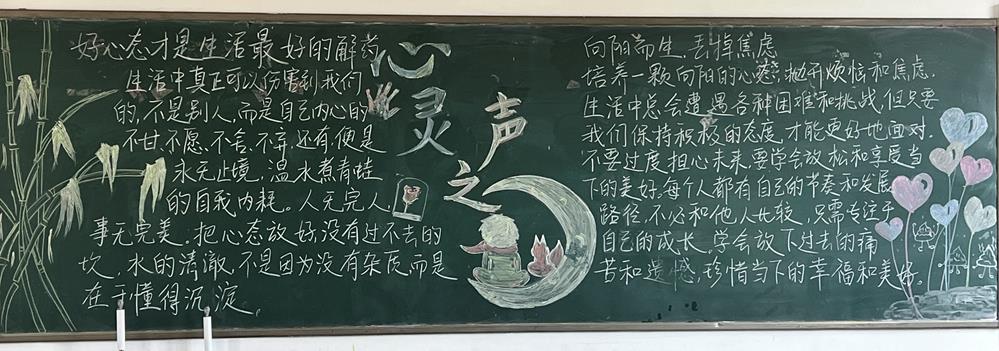 好心态才是生活最好的解药
生活中真正可以伤害到我们
的,不是别人,而是自己内心的
不甘、不愿、不舍、不弃,还有便是
永无止境,温水煮青蛙
的自我内耗。人无完人,
事无完美。把心态放好,没有过不去的
坎,水的清澈,不是因为没有杂质,而是
在于懂得沉淀。
心灵之声
向阳而生,丢掉焦虑
培养一颗向阳的心态,抛开烦恼和焦虑.
生活中总会遭遇各种困难和挑战,但只要
我们保持积极的态度,才能更好地面对.
不要过度担心未来,要学会放松和享受当
下的美好。每个人都有自己的节奏和发展
路径,不必和他人比较,只需专注于
自己的成长,学会放下过去的痛
苦和遗憾,珍惜当下的幸福和美好。